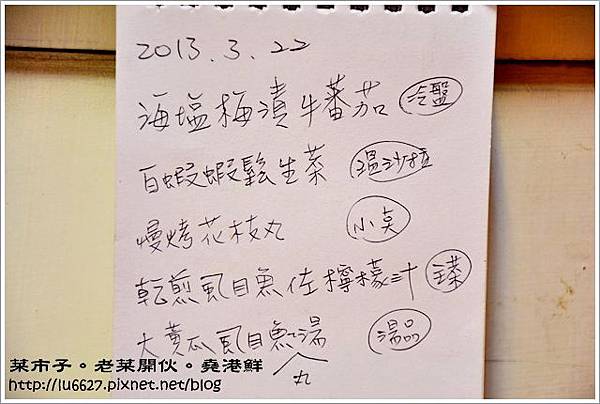 2013.3.22
海塩梅漬牛蕃茄 冷盤
白蝦蝦鬆生菜 溫沙拉
慢烤花枝丸 小點
乾煎虱目魚佐檸檬汁 主菜
大黃瓜虱目魚湯 湯品
丸
菜市子。老菜開伙。堯港鮮
http://lu6627.pixnet.net/blog